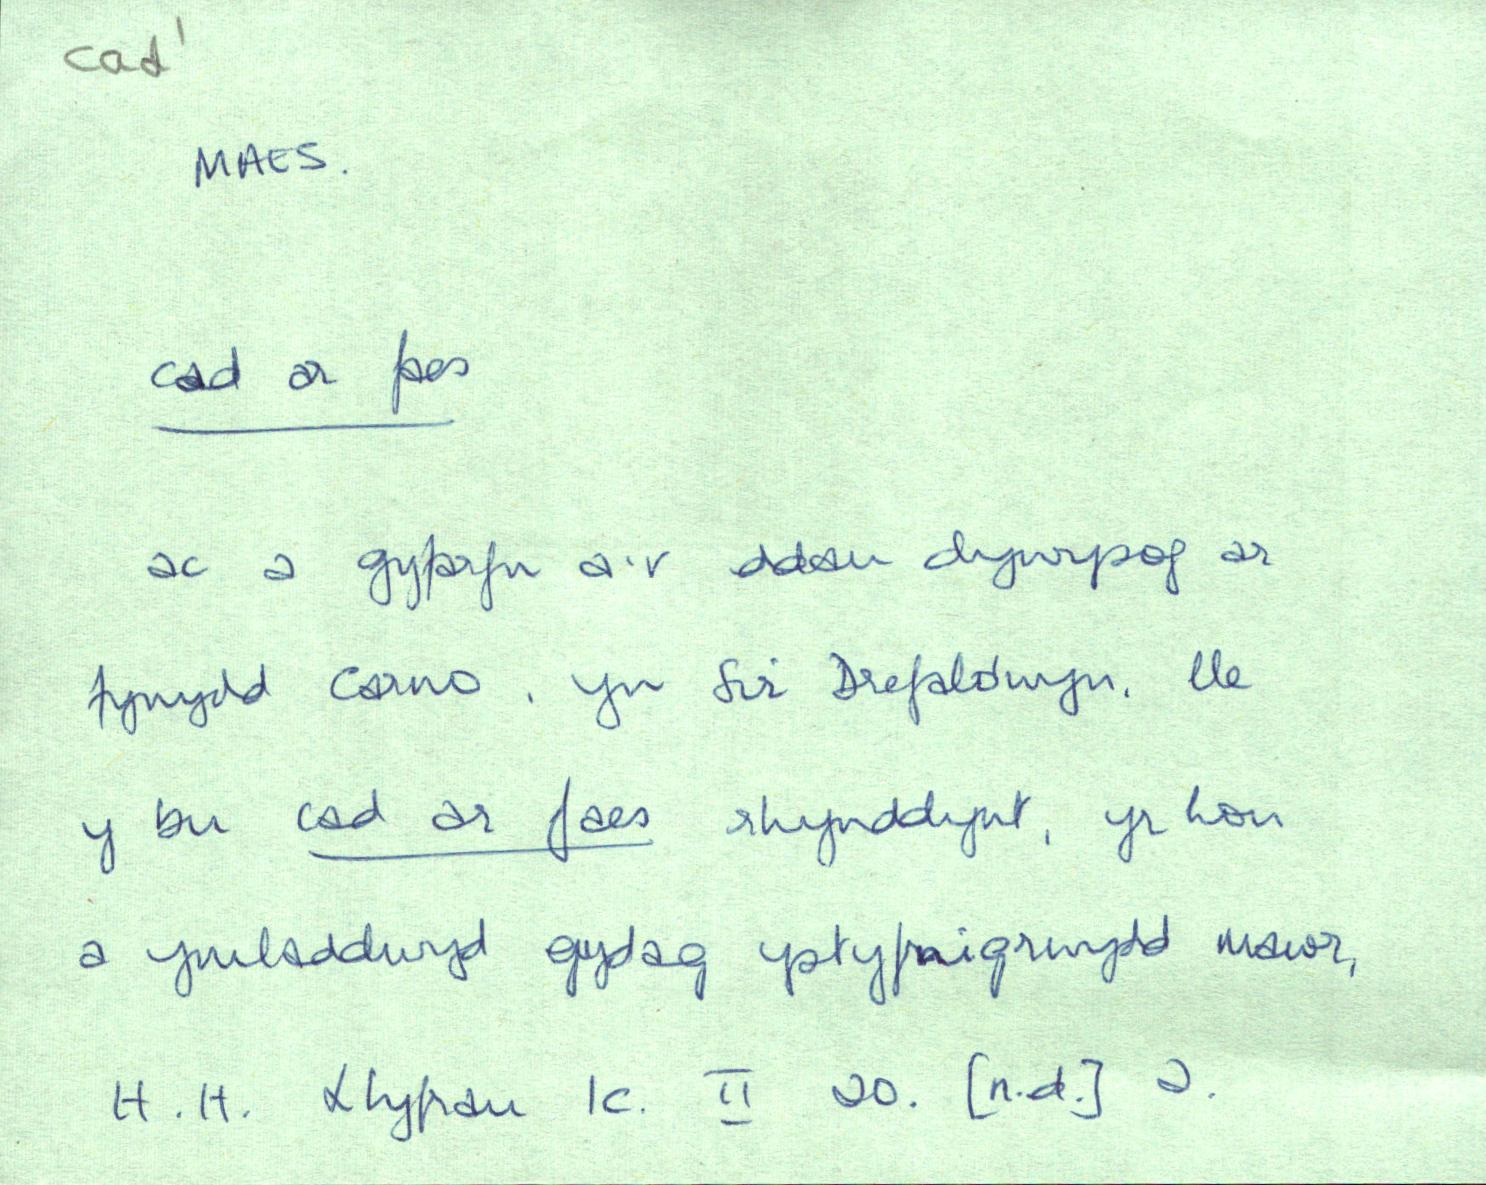 cad¹
MAES.
cad ar faes
ac a gyfarfu a'r ddau dywysog ar
fynydd Carno, yn Sir Drefaldwyn, lle
y bu cad ar faes rhynddynt, yr hon
a ymladdwyd gydag ystyfnigrwydd mawr,
H.H. Llyfrau 1c. II 20. [n.d.] 2.